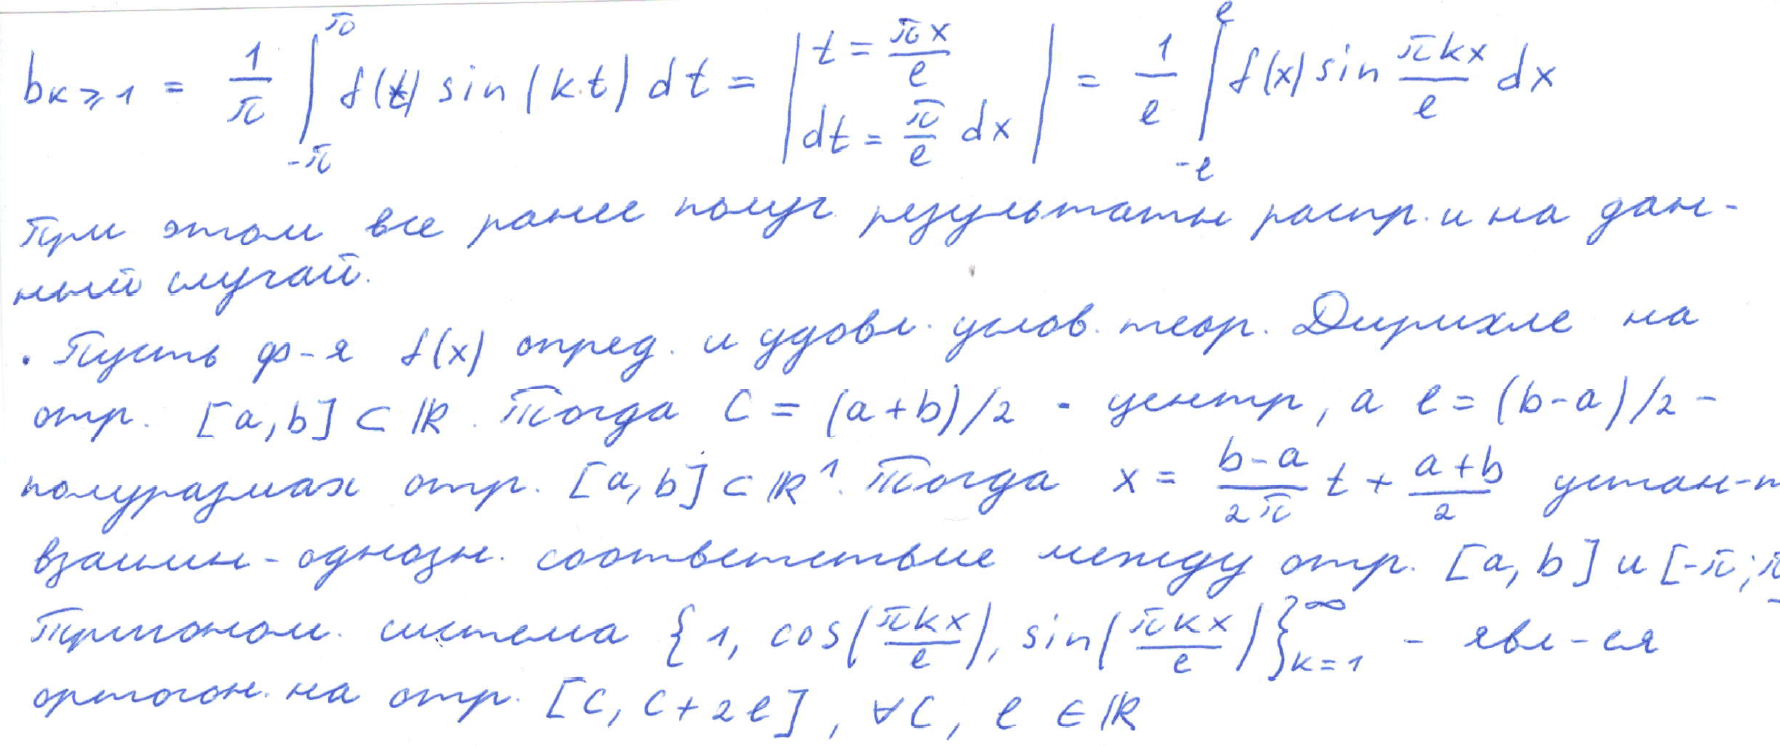 b_{k≥1} = \frac{1}{π} \int_{-π}^{π} f(t) sin(k·t) dt = | t = \frac{πx}{e}, dt = \frac{π}{e} dx | = \frac{1}{e} \int_{-e}^{e} f(x) sin \frac{πkx}{e} dx
При этом все ранее получ. результаты распр. и на дан-
ный случай.
• Пусть ф-я f(x) опред. и удовл. услов. теор. Дирихле на
отр. [a, b] ⊂ ℝ. Тогда C = (a+b)/2 - центр, а e = (b-a)/2 -
полуразмах отр. [a, b] ⊂ ℝ¹. Тогда x = \frac{b-a}{2π} t + \frac{a+b}{2} устан-т
взаимн-однозн. соответствие между отр. [a, b] и [-π; π
Тригоном. система {1, cos(\frac{πkx}{e}), sin(\frac{πkx}{e})}_{k=1}^{∞} - явл-ся
ортогон. на отр. [C, C+2e], ∀C, e ∈ ℝ